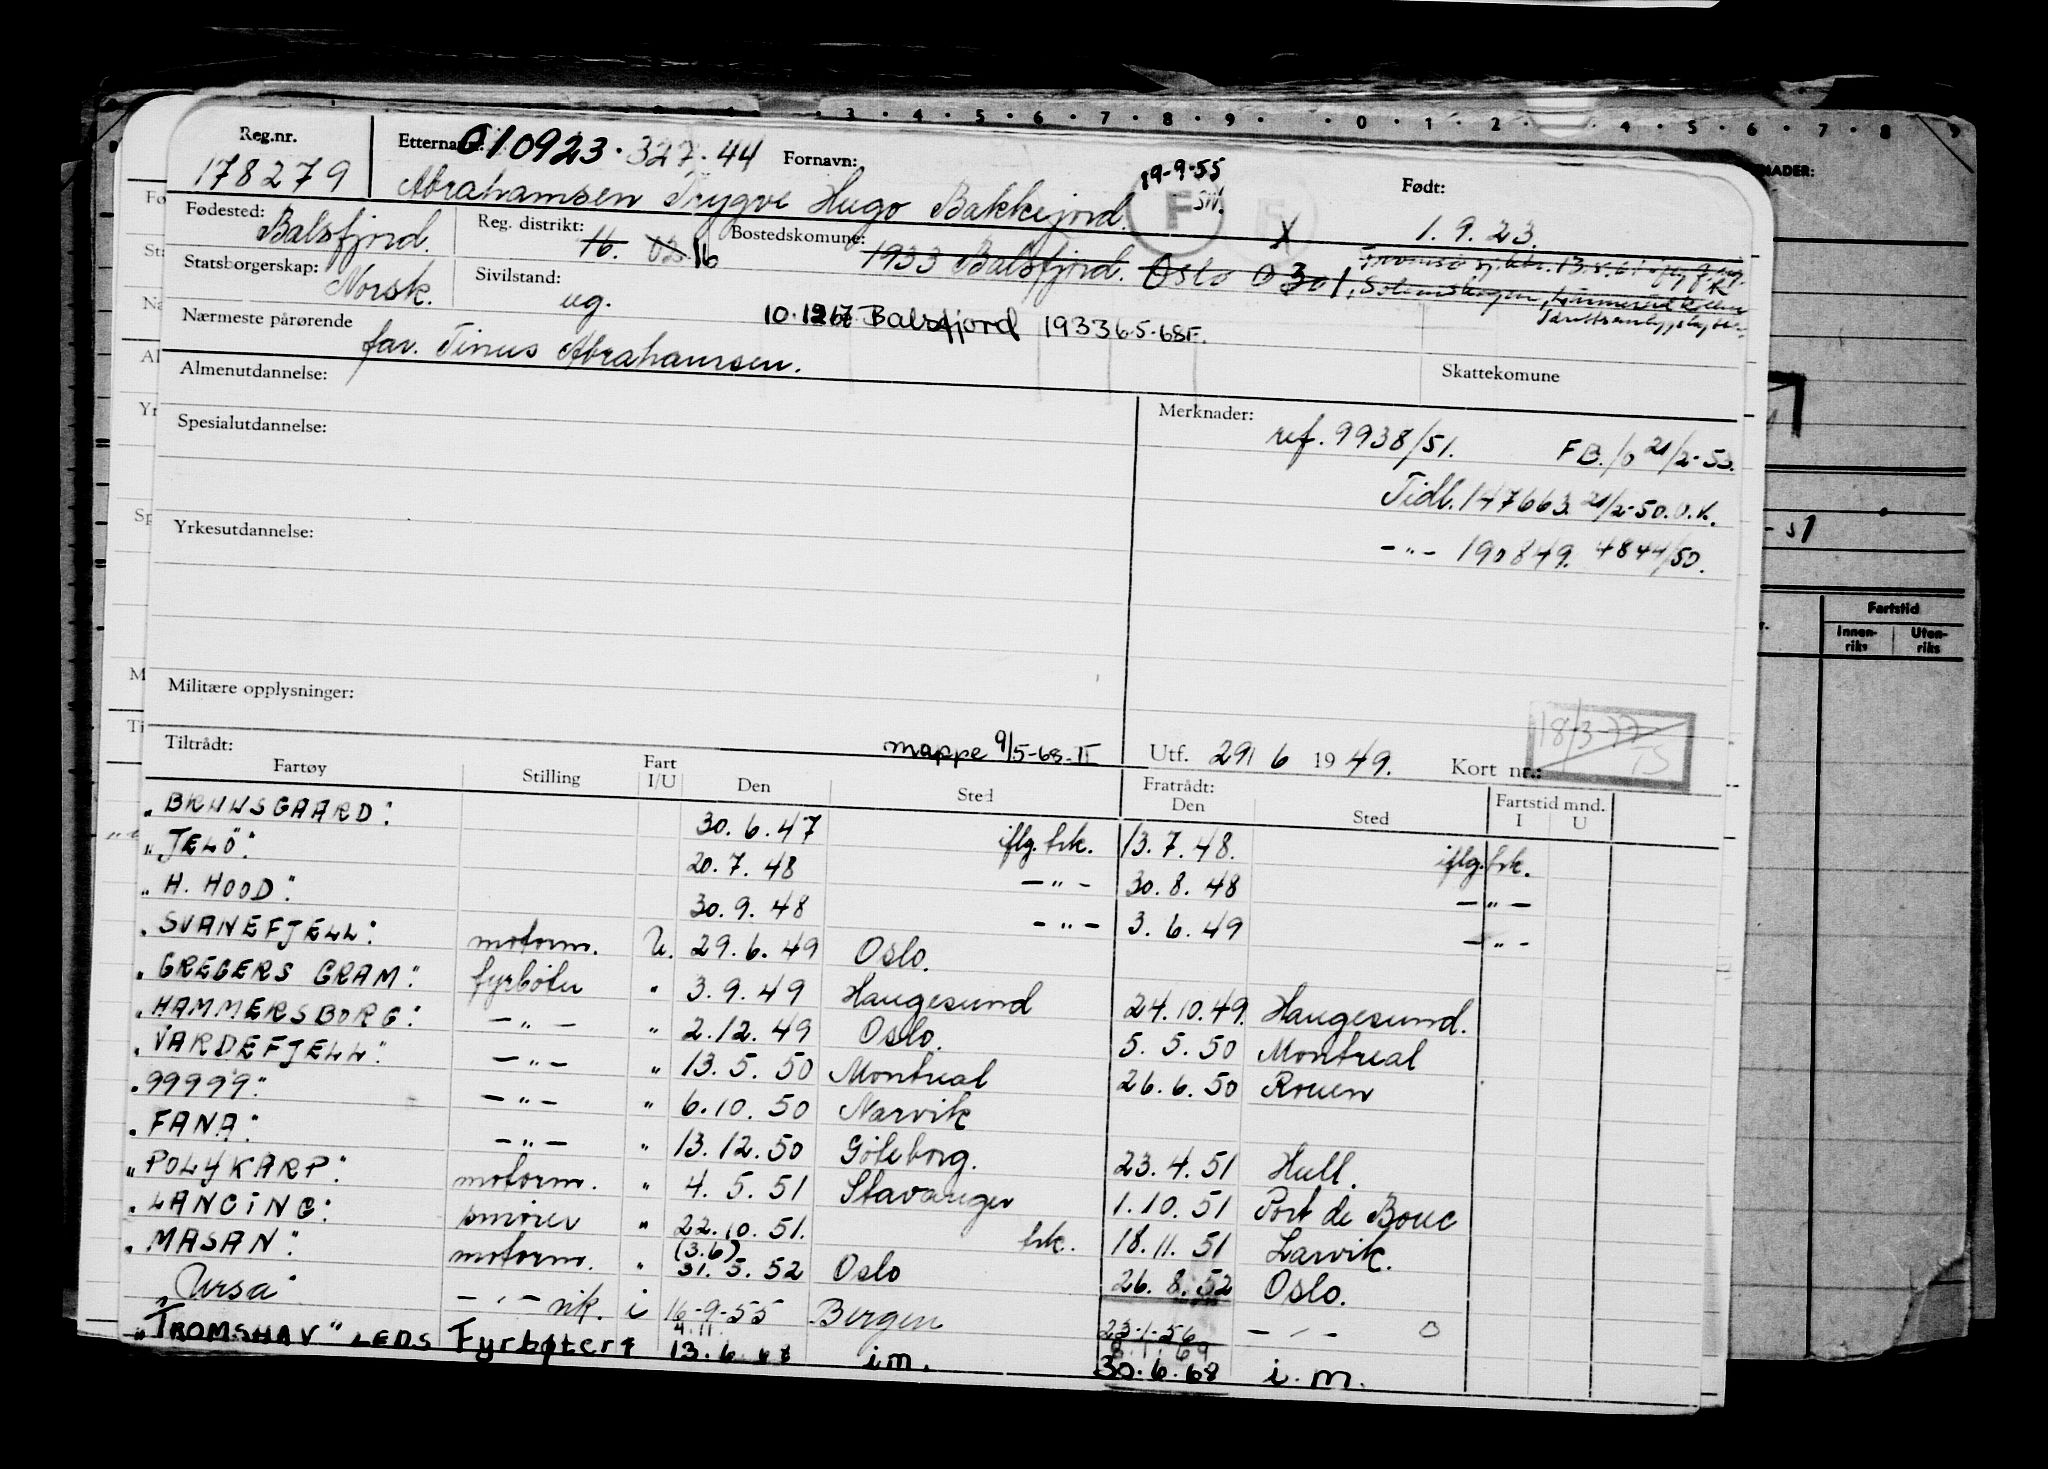 Reg.nr. Etternavn: 010923.327.44 Fornavn: 19-9-55 Født:
178279 Abrahamsen Trygve Hugo Bakkejord. F 1.9.23.
Fødested: Balsfjord. Reg. distrikt: 16. 03 16 Bostedskomune: 1933 Balsfjord. Oslo 0301
Statsborgerskap: Norsk. Sivilstand: ug. 10.12 67 Balsfjord 1933 6.5-68F.
Nærmeste pårørende far. Tinus Abrahamsen.
Almenutdannelse: Skattekomune
Spesialutdannelse: Merknader: ref. 9938/51. FB./o 21/2-50.
Tidl. 147663. 21/2-50. O.K.
Yrkesutdannelse: -"- 190849. 4844/50.
Militære opplysninger: 18/3-77 TS
Tiltrådt: mappe 9/5-68-II Utf. 29/ 6 1949. Kort nr.:
Fartøy Stilling Fart I/U Den Sted Fratrådt: Den Sted Fartstid mnd. I U
"BRUNSGAARD" 30.6.47 iflg. hk. 13.7.48. iflg. hk.
"JELÖ" 20.7.48 -"- 30.8.48 -"-
"H. HOOD" 30.9.48 -"- 3.6.49 -"-
"SVANEFJELL" motorm. U. 29.6.49 Oslo.
"GREGERS GRAM" fyrbøter " 3.9.49 Haugesund 24.10.49. Haugesund.
"HAMMERSBORG" -"- " 2.12.49 Oslo. 5.5.50 Montreal
"VARDEFJELL" -"- " 13.5.50 Montreal 26.6.50 Rouen
"99999" -"- " 6.10.50 Narvik
"FANA" -"- " 13.12.50 Göteborg. 23.4.51 Hull.
"POLYKARP" motorm. " 4.5.51 Stavanger 1.10.51 Port de Bouc
"LANCING" smører " 22.10.51. hk. 18.11.51 Larvik.
"MASAN" motorm. " (3.6) 31.5.52 Oslo 26.8.52 Oslo.
"Ursa" -"- vik. i 16-9-55 Bergen 23-1-56 -"- O
"TROMSHAV" LEDS Fyrbøter 4.11. 13.6 i.m. 8.1.69 30.6.68 i.m.
Fartstid
Innenriks Utenriks